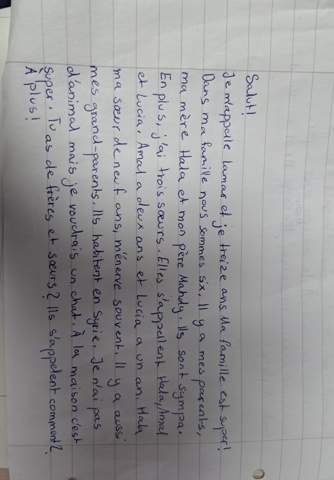 Salut!
Je m'appelle Lamar et je treize ans Ma famille est super!
Dans ma famille nous sommes six. Il y a mes parents,
ma mère Hala et mon père Mahdy. Ils sont sympa.
En plus, j'ai trois sœurs. Elles s'appellent Hala, Amal
et Lucia. Amal a deux ans et Lucia a un an. Hala
ma sœur de neuf ans, m'énerve souvent. Il y a aussi
mes grand-parents. Ils habitent en Syrie. Je n'ai pas
d'animal mais je voudrais un chat. À la maison c'est
super. Tu as de frères et sœurs? Ils s'appelent comment?
À plus!